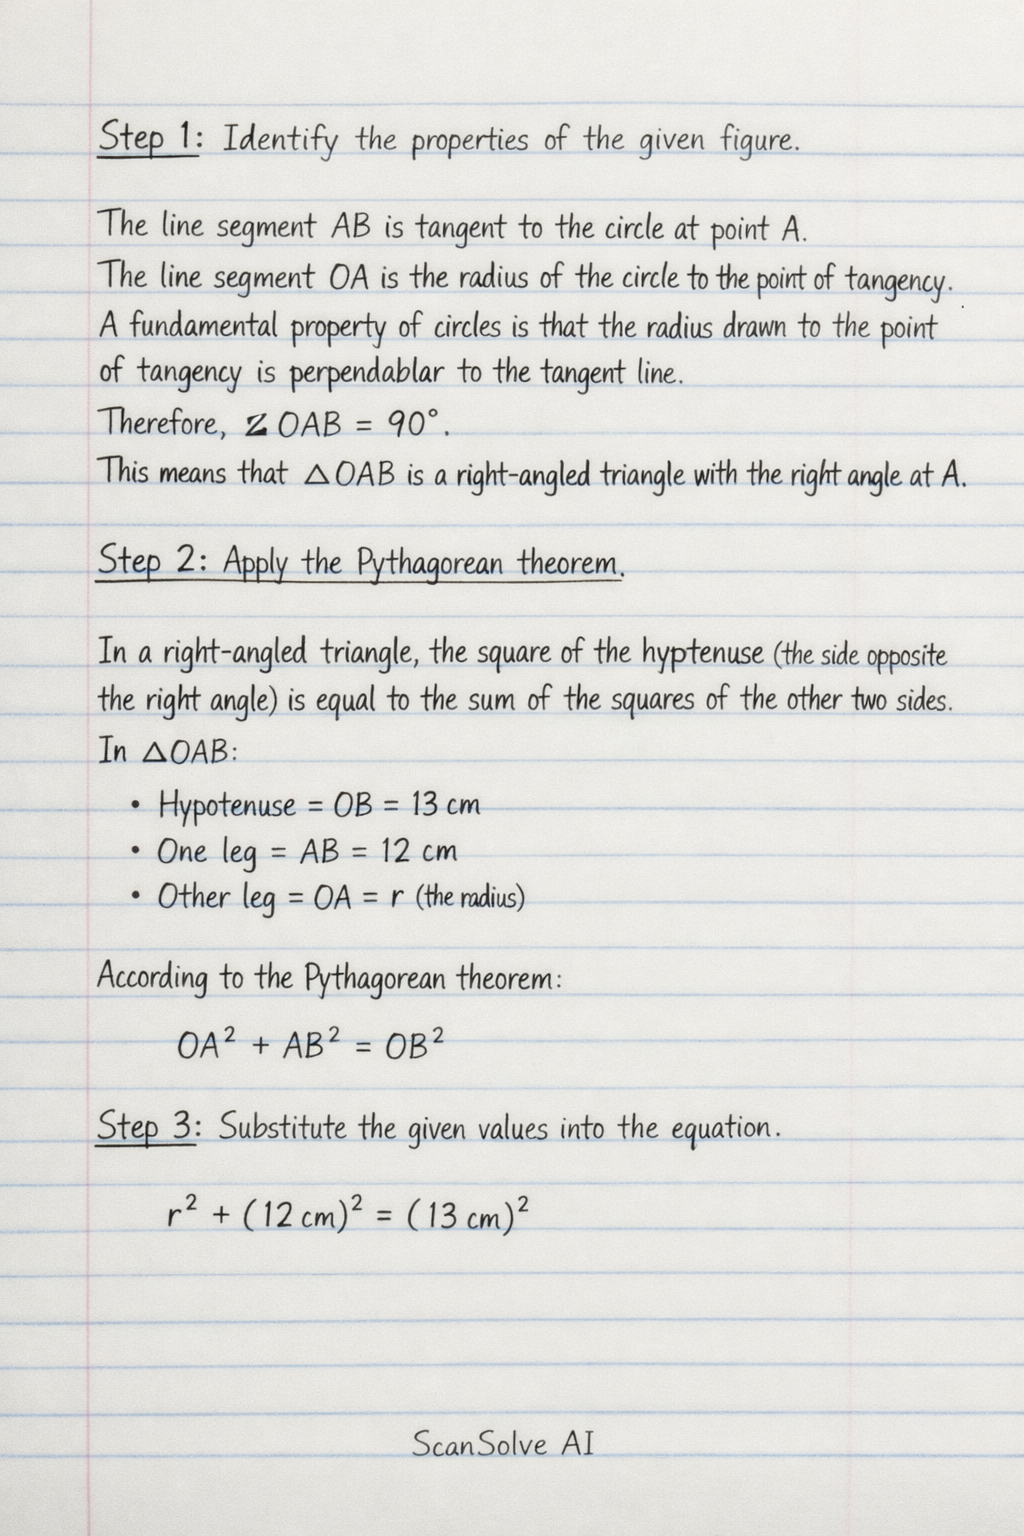 Step 1: Identify the properties of the given figure.
The line segment AB is tangent to the circle at point A.
The line segment OA is the radius of the circle to the point of tangency.
A fundamental property of circles is that the radius drawn to the point
of tangency is perpendablar to the tangent line.
Therefore, Z OAB = 90°.
This means that △OAB is a right-angled triangle with the right angle at A.
Step 2: Apply the Pythagorean theorem.
In a right-angled triangle, the square of the hyptenuse (the side opposite
the right angle) is equal to the sum of the squares of the other two sides.
In △OAB:
• Hypotenuse = OB = 13 cm
• One leg = AB = 12 cm
• Other leg = OA = r (the radius)
According to the Pythagorean theorem:
OA² + AB² = OB²
Step 3: Substitute the given values into the equation.
r² + (12 cm)² = (13 cm)²
ScanSolve AI